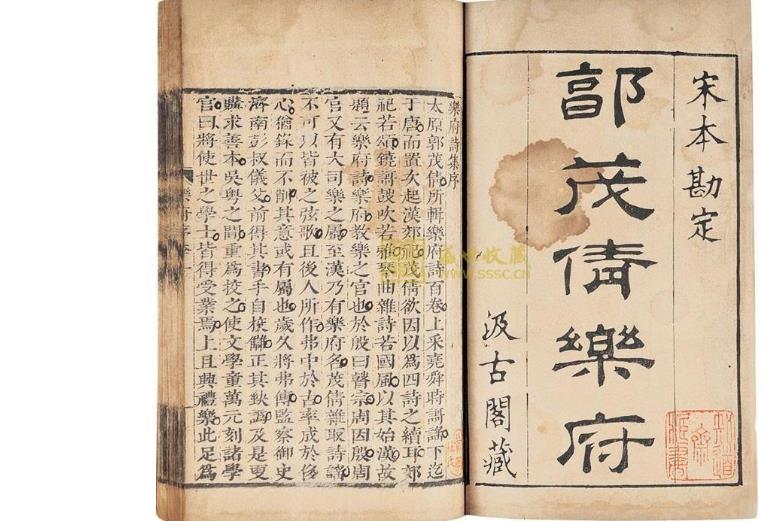 宋本勘定
郭茂倩樂府
汲古閣藏
樂府詩集序
太原郭茂倩所輯樂府詩百卷上采堯舜時謌謠下迄
于唐而置次起漢郊祀茂倩欲因以為四詩之續耳郊
祀若頌鐃謌鼓吹若雅琴曲雜詩若國風以其始漢故
題云樂府詩樂府教樂之官也於殷曰瞽宗周因殷周
官又有大司樂之屬至漢乃有樂府名茂倩雜取詩謠
不可以皆被之弦歌且後人所作弗中於古率成於侈
心猶錄而不削其意或有屬也歲久將弗傳監察御史
濟南彭叔儀父前得其書手自校讎正其缺譌及是更
購求善本吳粵之間重為挍之使文學童萬元刻諸學
官曰將使世之學士皆得受業焉上且典禮樂此足為
盛世收藏
www.sssc.cn